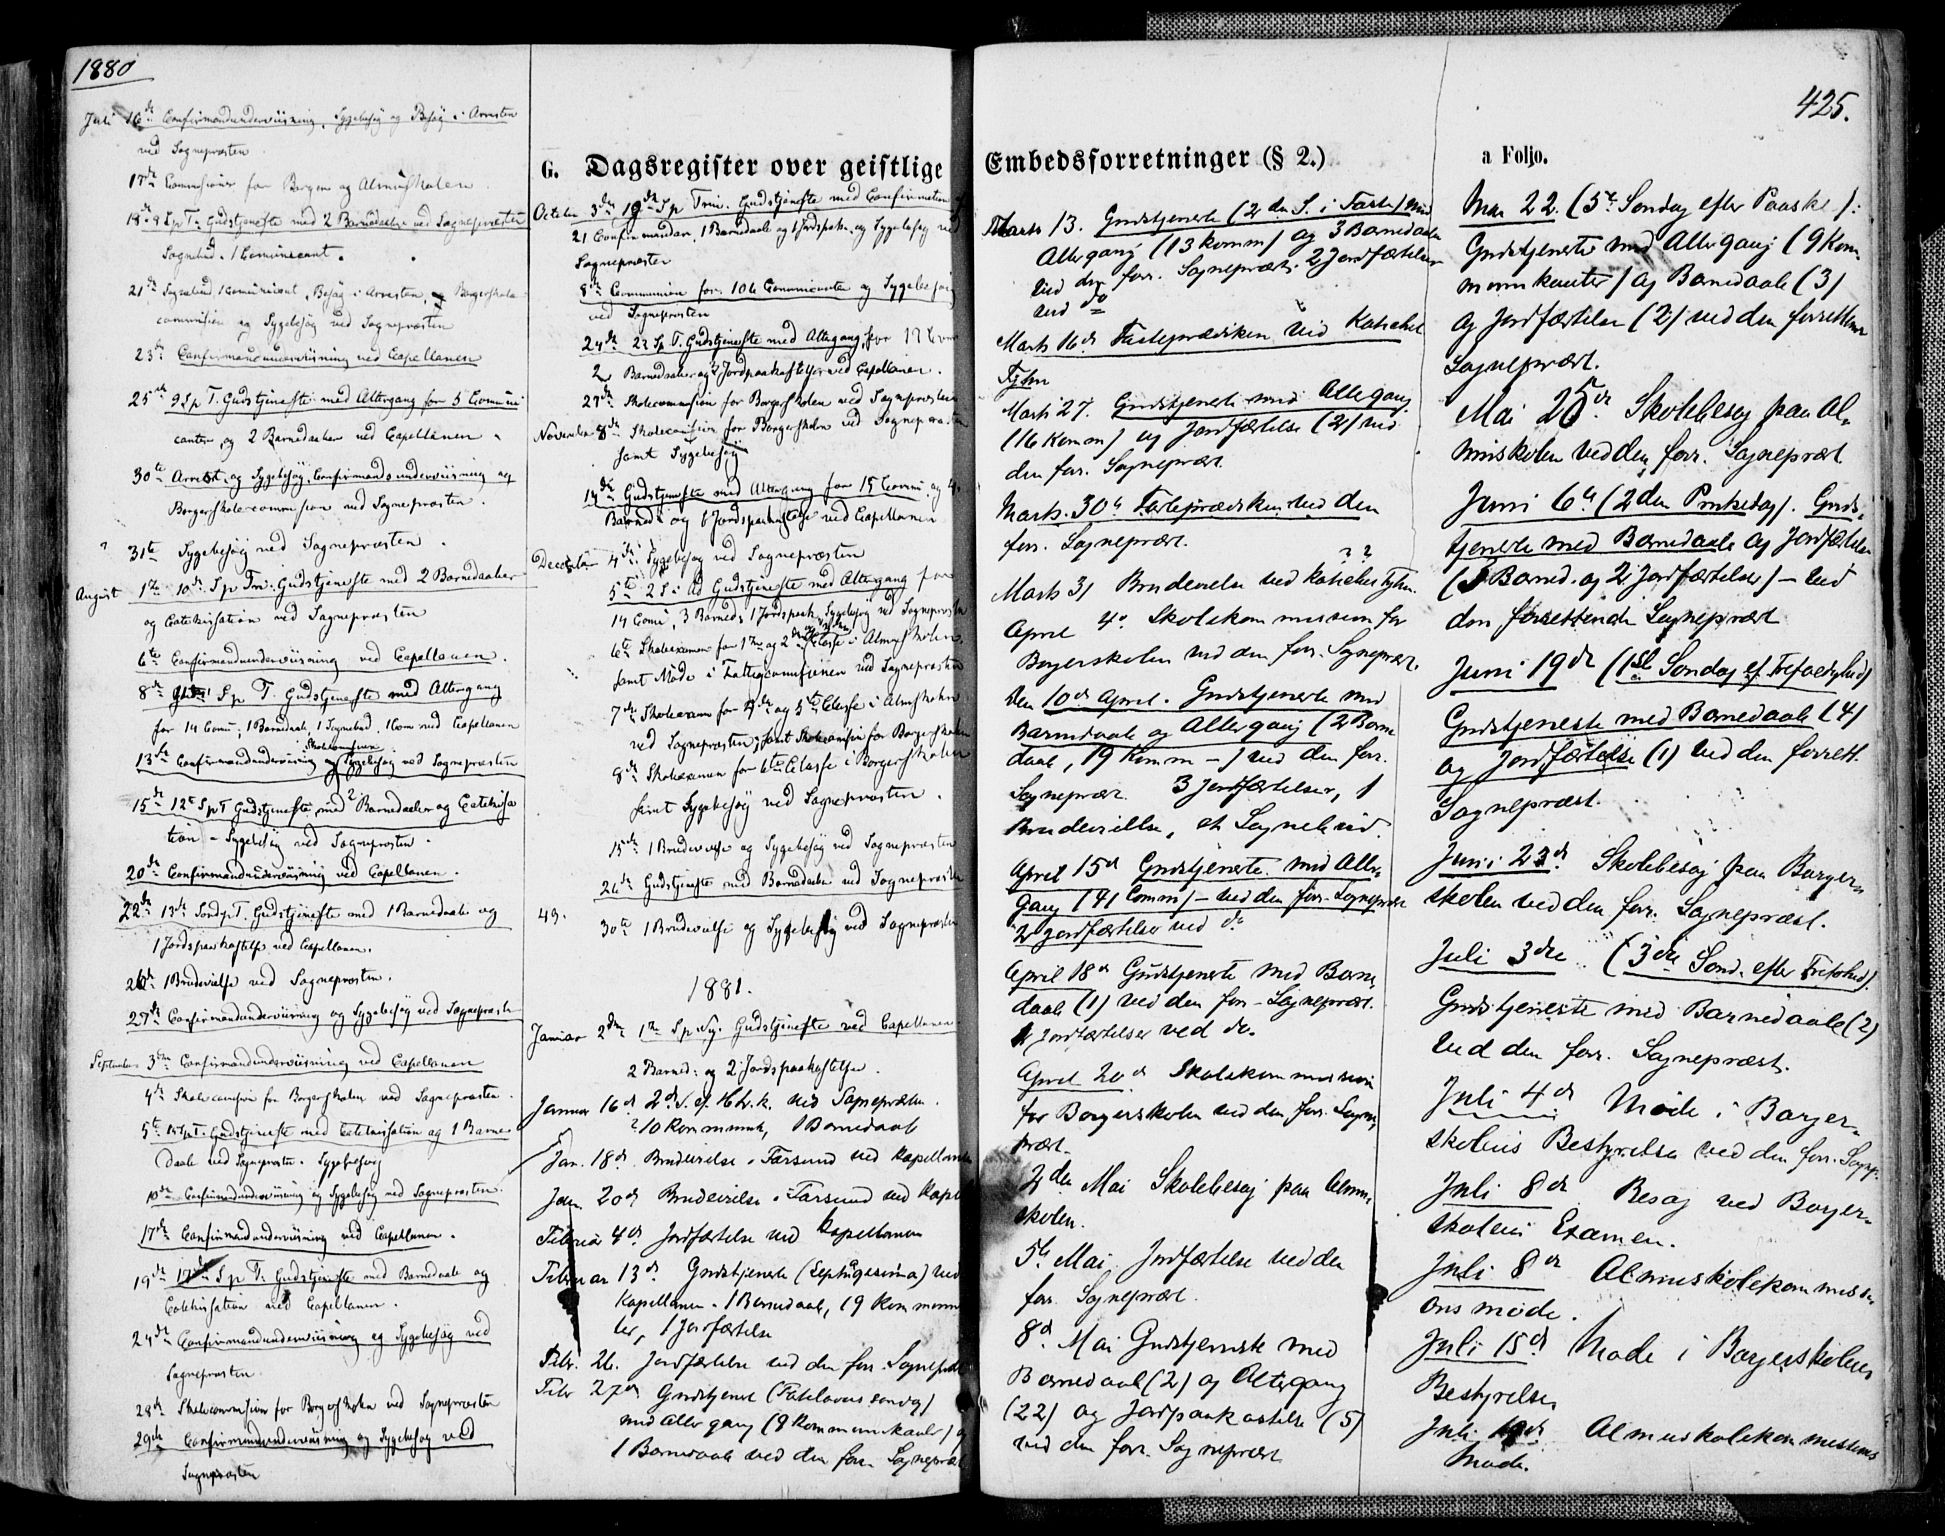 1880
Juli 16de Confirmandunderviisning, Sygebesøg og Besøg i Arresten
ved Sognepræsten.
17de Commission for Borgern og Almuskolen.
18de 8 Sp T. Gudstjeneste med 2 Barnedaaber ved Sognepræsten
Sognebud. 1 Communicant.
21de Sognebud 1 Communicant, Besøg i Arresten, Borgerskole
commission og Sygebesøg ved Sognepræsten
23de Confirmandunderviisning ved Capellanen
25de 9 Sp T. Gudstjeneste med Altergang for 5 Communi
canter, og 2 Barnedaaber ved Capellanen
30te Arrest og Sygebesøg, Confirmandunderviisning og
Borgerskolecommission ved Sognepræsten.
31te Sygebesøg ved Sognepræsten.
August 1ste 10de Sp Trin: Gudstjeneste med 2 Barnedaaber
og Catekisation ved Sognepræsten
6te Confirmandunderviisning ved Capellanen.
8de Sp T. Gudstjeneste med Altergang
for 14 Comu, 1 Barnedaab, 1 Sognebud, 1 Com ved Capellanen
Skolecommission
13de Confirmandunderviisning og Sygebesøg ved Sognepræsten
15de 12te Sp T Gudstjeneste med 2 Barnedaaber og Catekisa
tion - Sygebesøg ved Sognepræsten.
20de Confirmandunderviisning ved Capellanen.
22de 13de Sond p T. Gudstjeneste med 1 Barnedaab og
1 Jordspaakastelse ved Capellanen.
26de 1 Brudevielse ved Sognepræsten.
27de Confirmandunderviisning og Sygebesøg ved Sognepræsten
September 3die Confirmandunderviisning ved Capellanen
4de Skolecommission for Borgerskolen ved Sognepræsten.
5te 15 Sp T. Gudstjeneste med Catekisation og 1 Barne
daab ved Sognepræsten. Sygebesøg
10de Confirmandunderviisning og Sygebesøg ved Sognepræsten.
17de Confirmandunderviisning ved Capellanen.
19de 17de Sp T. Gudstjeneste med Barnedaab og
Catekisation ved Capellanen.
24de Confirmandunderviisning og Sygebesøg ved
Sognepræsten.
28de Skolecommission for Borgerskolen ved Sognepræsten
29de Confirmandunderviisning og Sygebesøg ved
Sognepræsten
G. Dagsregister over geistlige
October 3die 19de Sp Trin. Gudstjeneste med Confirmation af
21 Confirmander, 1 Barnedaab og 1 Jordspaak. og Sygebesøg ved
Sognepræsten
8de Communion for 106 Communicanter og Sygebesøg
ved Sognepræsten
24de 22 Sp T. Gudstjeneste med Altergang for 17 Comm
2 Barnedaaber og Jordpaakastelser ved Capellanen.
27de Skolecommission for Borgerskolen ved Sognepræsten
November 8de Skolecomission for Borgerskolen ved Sognepræsten
samt Sygebesøg
14de Gudstjeneste med Altergang for 15 Comu. og 4
Barned: og 6 Jordspaakastelse ved Capellanen
December 4de Sygebesøg ved Sognepræsten
5te 2 S i Ad Gudstjeneste med Altergang for
14 Comu, 3 Barned, 1 Jordspaak. Sygebesøg ved Sognepræsten
6te Skoleexamen for 1ste og 2den Classe i Almuskolen
samt Møde i Fattigcommissionen ved Sognepræsten
7de Skoleexam for 4de og 5te Classe i Almuskolen
ved Sognepræsten, samt Skolecomission for Borgerskolen
8de Skoleexamen for Classe i Borgerskolen
samt Sygebesøg ved Sognepræsten.
15de 1 Brudevielse og Sygebesøg ved Sognepræsten
26de Gudstjeneste med Barnedaab ved Sognepræsten
49. 30te 1 Brudevielse og Sygebesøg ved Sognepræsten
1881.
Januar 2den 1ste Sp Ny. Gudstjeneste ved Capellanen
2 Barned: og 2 Jordspaakastelse.
Januar 16de 2de S. ef. H.tr.k. ved Sognepræsten.
10 Kommunik, 1 Barnedaab
Jan. 18de Brudevielse i Farsund ved Kapellanen
Jan. 20de Brudevielse i Farsund ved Kapel
Februar 4de Jordfæstelse ved Kapellanen
Februar 13de Gudstjeneste (Septuagesima) ved
Kapellanen. 1 Barnedaab, 19 Kommuni
ter, 1 Jordfæstelse
Febr. 26. Jordfæstelse ved den forr. Sognepræst
Febr 27de Gudstjenest (Fastelavns søndag)
med Altergang (9 Kommunikanter) og
1 Barnedaab ved den forr. Sognepræst
425.
Embedsforretninger (§ 2.)
a Foljo.
Marts 13. Gudstjeneste (2den S. i Faste) med
Altergang (13 Komm) og 3 Barnedaab
ved den forr. Sognepræst. 2 Jordfæstelser
ved do
Marts 16de Fasteprædiken ved Kateket
Tyhn
Marts 27. Gudstjeneste med Altergang
(16 Komm) og Jordfæstelse (2) ved
den forr. Sognepræst.
Marts. 30te Fasteprædiken ved den
forr. Sognepræst.
Marts 31 Brudevielse ved Kateket Tyhn.
April 4de Skolekommission for
Borgerskolen ved den forr. Sognepræst.
Den 10de April. Gudstjeneste med
Barnedaab og Altergang (2 Barne
daab, 19 Komm -) ved den forr.
Sognepræst. 3 Jordfæstelser, 1
Brudevielse, et Sognebud.
April 15de Gudstjeneste med Alter
gang (41 Comm) - ved den forr. Sognepræst
2 Jordfæstelser ved do
April 18de Gudstjeneste med Barne
daab (1) ved den forr. Sognepræst.
Jordfæstelser ved do.
April 20de Skolekommission
for Borgerskolen ved den forr. Sogne
præst.
2den Mai Skolebesøg paa Almu
skolen.
5te Mai. Jordfæstelse ved den
forr. Sognepræst.
8de Mai Gudstjeneste med
Barnedaab (2) og Altergang
(22) og Jordpaakastelse (5)
ved den forr. Sognepræst
Mai 22. (5te Søndag efter Paaske):
Gudstjeneste med Altergang (9 Kom-
munikanter) og Barnedaab (3)
og Jordfæstelse (2) ved den forrettende
Sognepræst.
Mai 25de Skolebesøg paa Al-
muskolen ved den forr. Sognepræst
Juni 6te (2den Pinksedag). Guds-
tjeneste med Barnedaab og Jordfæstelse
( Barned. og 2 Jordfæstelser) - ved
den forrettende Sognepræst
Juni 19de (1ste Søndag ef. Trefoldighed)
Gudstjeneste med Barnedaab (4)
og Jordfæstelse (1) ved den forrett.
Sognepræst.
Juni 23de Skolebesøg paa Borger-
skolen ved den forr. Sognepræst.
Juli 3die (3die Sønd. efter Trefoldhed).
Gudstjeneste med Barnedaab (2)
ved den forr. Sognepræst.
Juli 4de Møde i Borger-
skolens Bestyrelse ved den forr. Sognp.
Juli 8de Besøg ved Borger-
skolens Examen.
Juli 8de Almuskolekommissi-
onsmøde.
Juli 15de Møde i Borgerskolens
Bestyrelse.
Juli 19de Almueskolekommissions
Møde.